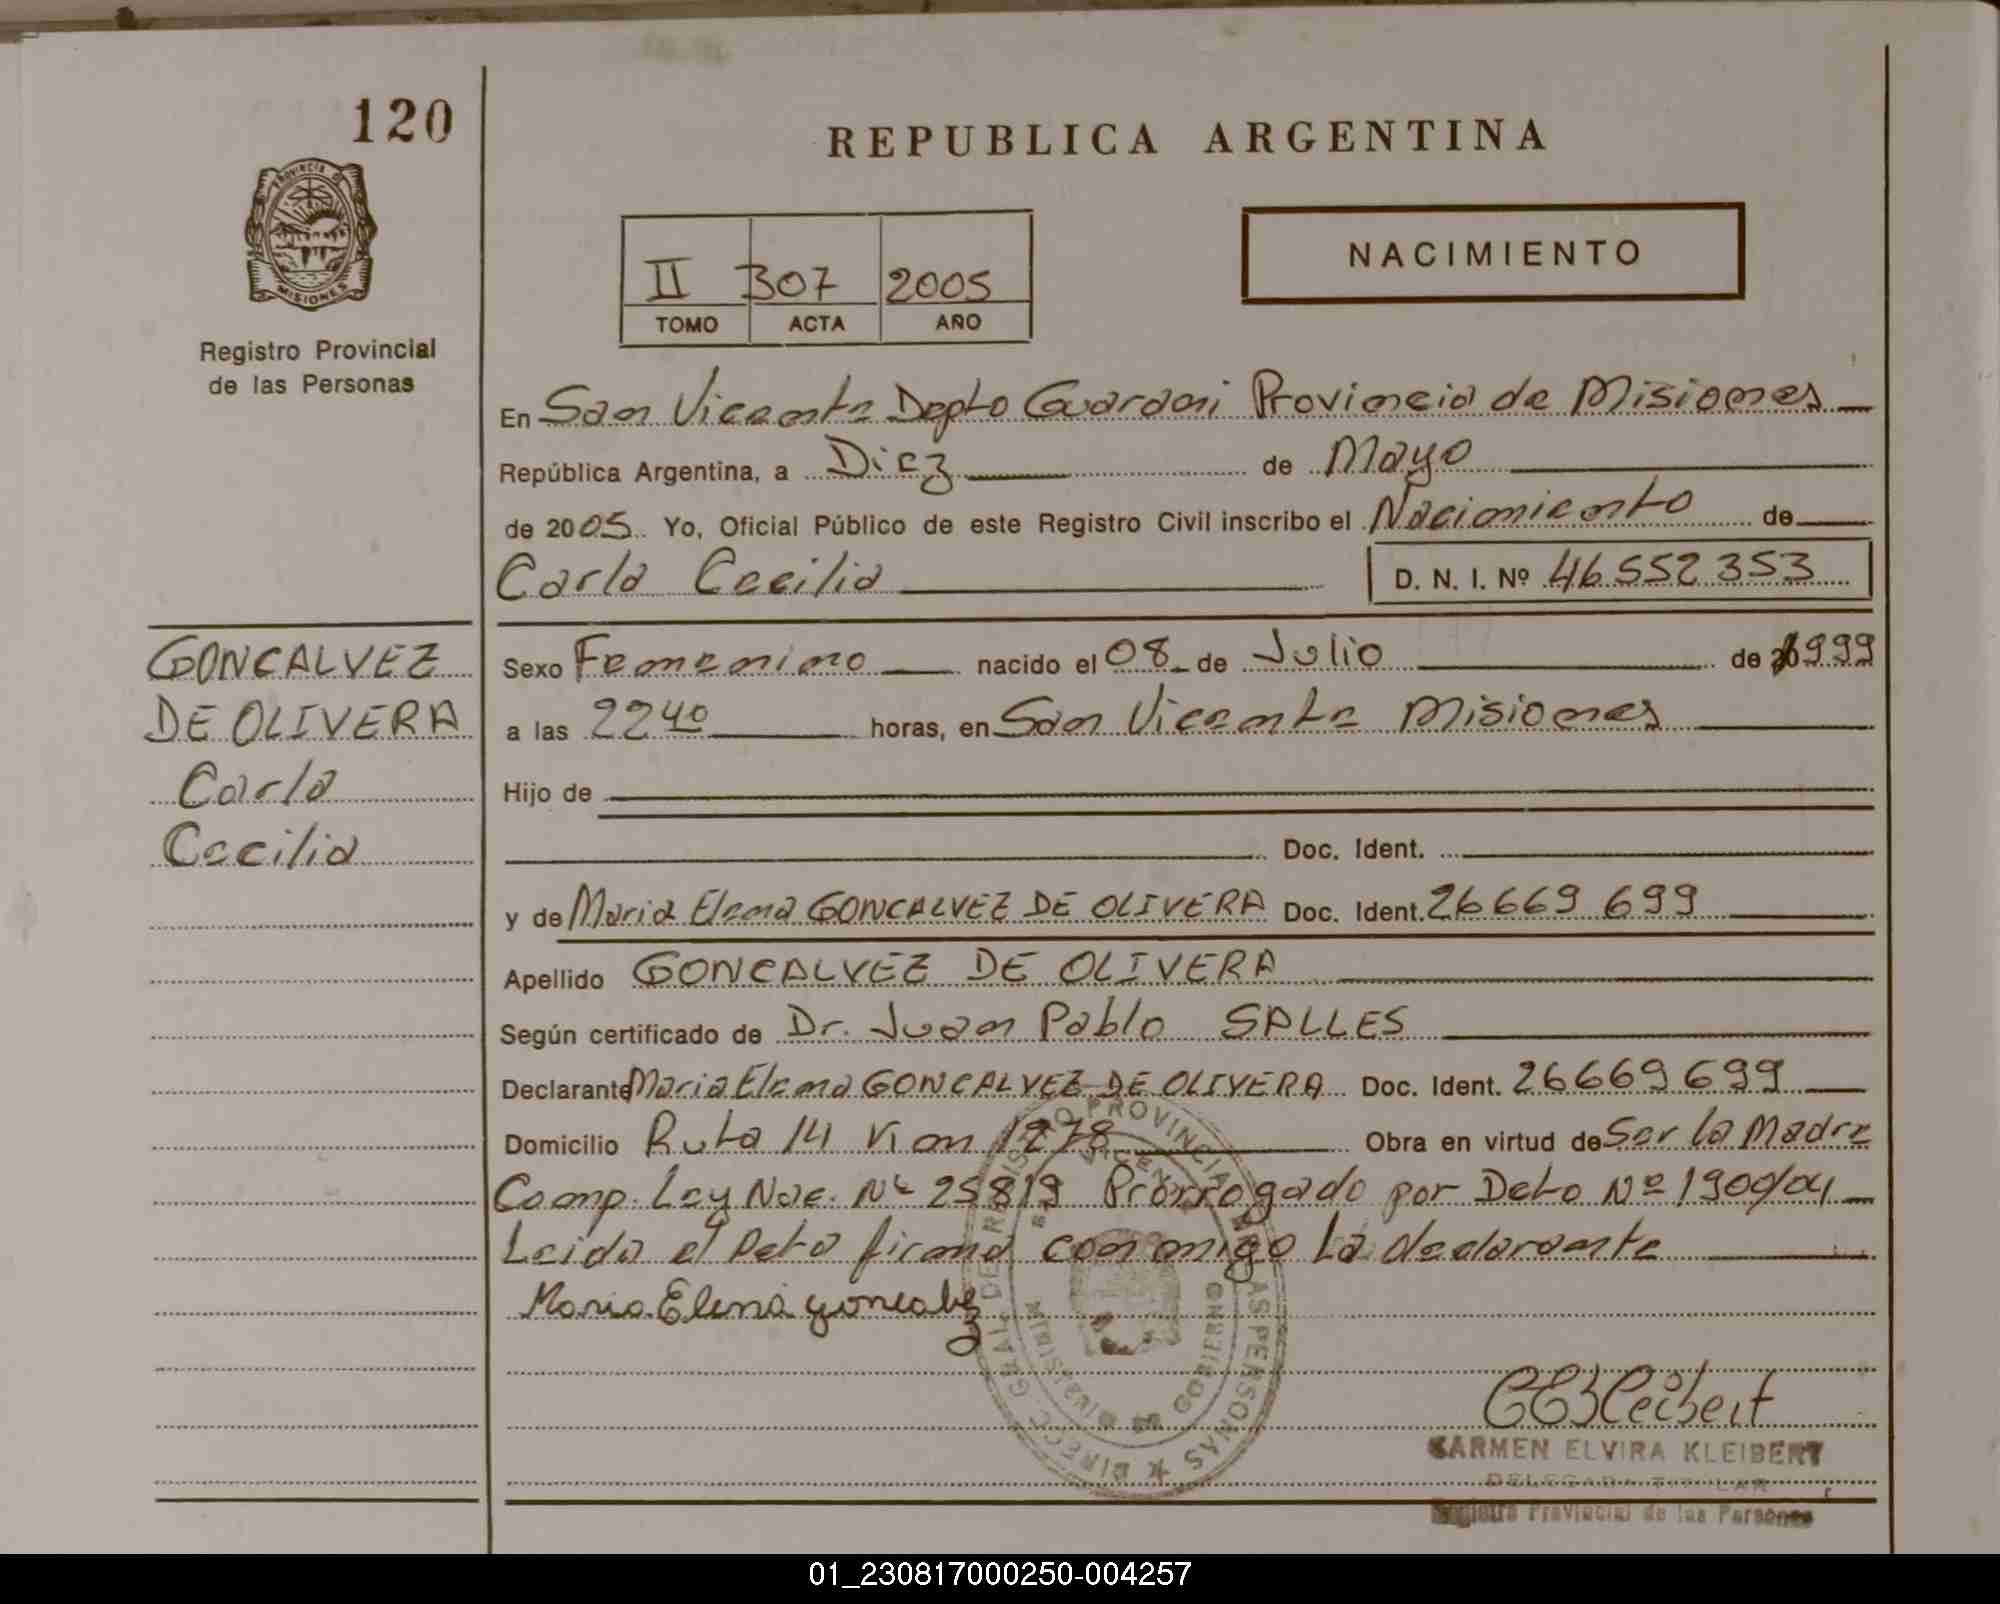 120
REPUBLICA ARGENTINA
PROVINCIA DE
MISIONES
NACIMIENTO
II 307 2005
TOMO ACTA AÑO
Registro Provincial
de las Personas
En San Vicente Depto Guarani Provincia de Misiones
República Argentina, a Diez de Mayo
de 2005 Yo, Oficial Público de este Registro Civil inscribo el Nacimiento de
Carla Cecilia D. N. I. Nº 46 552 353
GONCALVEZ
DE OLIVERA
Carla
Cecilia
Sexo Femenino nacido el 08 de Julio de 1999
a las 22 40 horas, en San Vicente Misiones
Hijo de
Doc. Ident.
y de Maria Elena GONCALVEZ DE OLIVERA Doc. Ident. 26669 699
Apellido GONCALVEZ DE OLIVERA
Según certificado de Dr. Juan Pablo SALLES
Declarante Maria Elena GONCALVEZ DE OLIVERA Doc. Ident. 26669 699
Domicilio Ruta 14 Km 1278 Obra en virtud de Ser la Madre
Comp. Ley Nac. Nº 25819 Prorrogado por Dcto Nº 1900/04
Leida el Acta firma con migo la declarante
Maria Elena goncalvez
DIRECC. GRAL. DE REGISTRO PROVINCIAL DE LAS PERSONAS
MINISTERIO DE GOBIERNO
CEKleibert
KARMEN ELVIRA KLEIBERT
DELEGADA TITULAR
Registro Provincial de las Personas
01_230817000250-004257